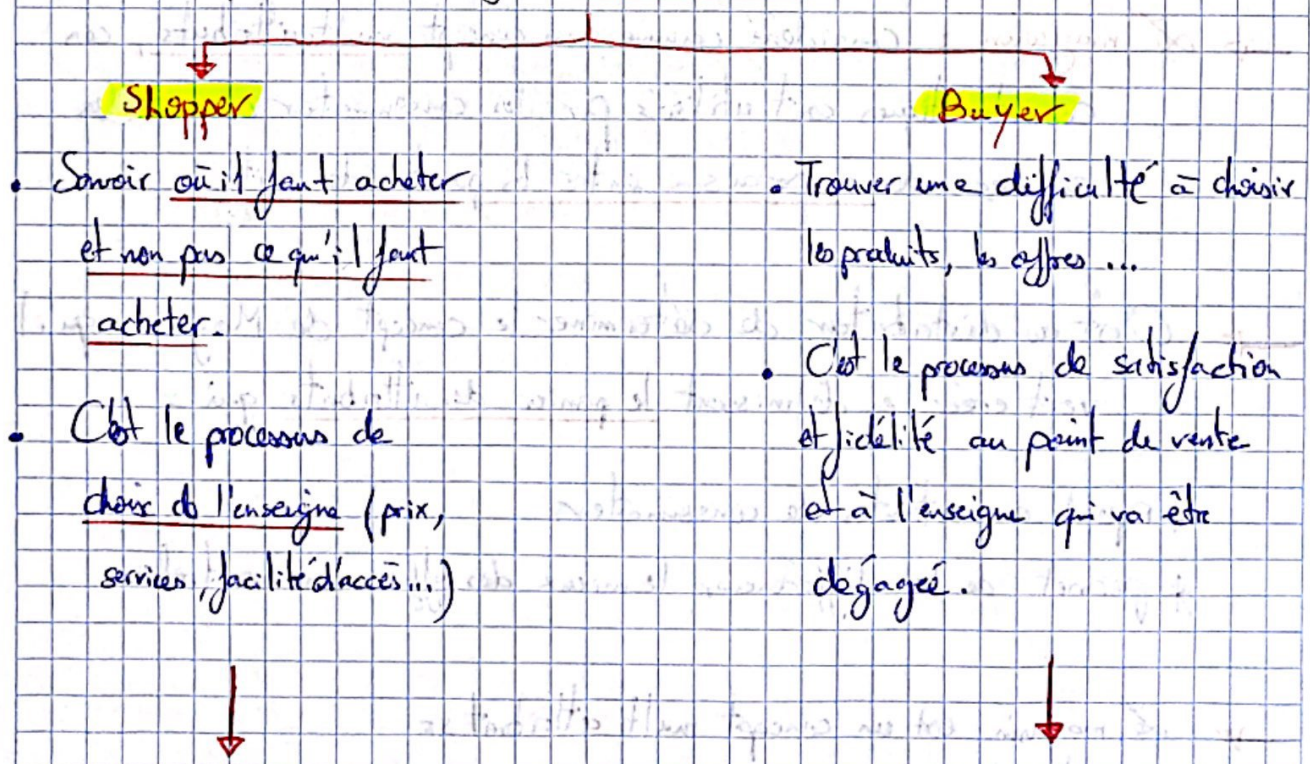 Shopper
• Savoir où il faut acheter
et non pas ce qu'il faut
acheter.
• C'est le processus de
choix de l'enseigne (prix,
services, facilité d'accès...)
Buyer
• Trouver une difficulté à choisir
les produits, les offres ...
• C'est le processus de satisfaction
et fidélité au point de vente
et à l'enseigne qui va être
dégagée.